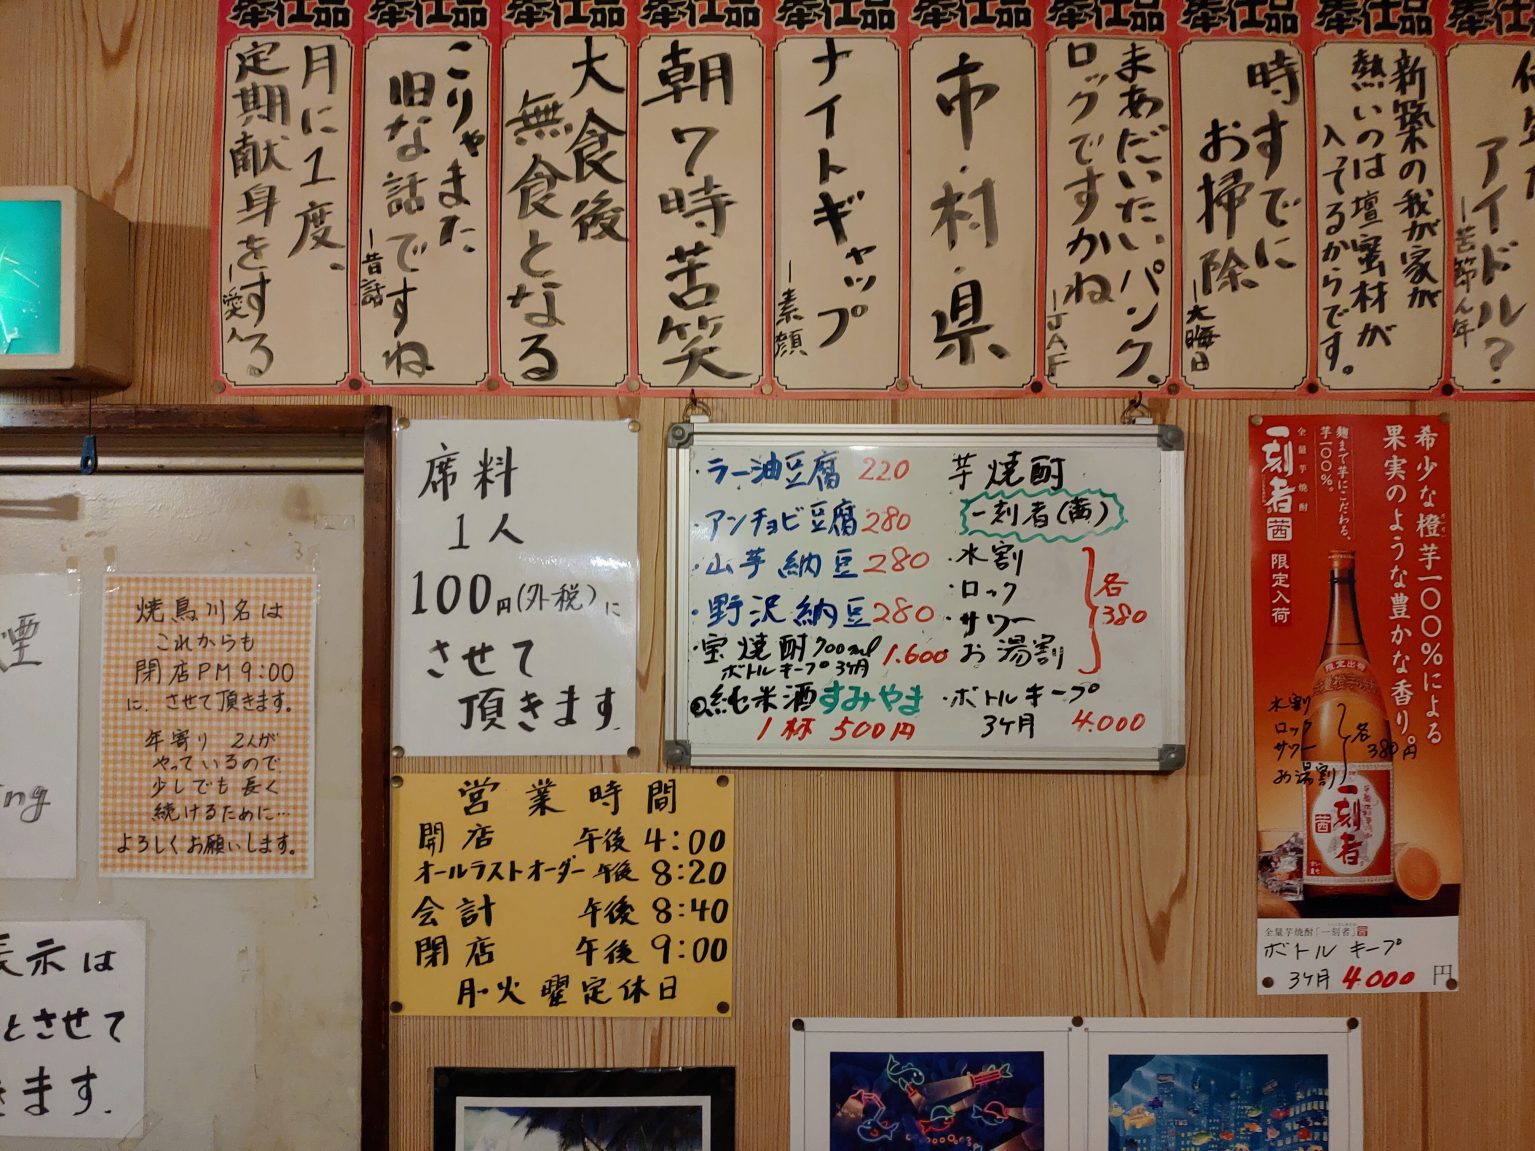 奉仕品
まあだいたいパンク、
ロックですかね
―JAF
奉仕品
時すでに
お掃除
―大晦日
奉仕品
新築の我が家が
熱いのは壇蜜材が
入ってるからです。
奉仕品
アイドル?
―苦節ん年
奉仕品
市・村・県
奉仕品
ナイトギャップ
―素顔
奉仕品
朝7時苦笑
奉仕品
大食後
無食となる
奉仕品
こりゃまた
旧な話ですね
―昔話
奉仕品
月に1度、
定期献身をする
席料
1人
100円(外税)に
させて
頂きます.
・ラー油豆腐 220
・アンチョビ豆腐 280
・山芋納豆 280
・野沢納豆 280
・宝焼酎700ml
ボトルキープ3ヶ月 1.600
純米酒すみやま
1杯 500円
芋焼酎
一刻者(茜)
・水割
・ロック
・サワー
・お湯割
各
380
・ボトルキープ
3ヶ月 4.000
希少な橙芋一〇〇%による
果実のような豊かな香り。
麹まで芋にこだわる、
芋一〇〇%。
全量芋焼酎
一刻者
茜
限定入荷
水割
ロック
サワー
お湯割
各
380円
一刻者
茜
全量芋焼酎「一刻者」茜
ボトルキープ
3ヶ月 4.000 円
焼鳥川名は
これからも
閉店PM9:00
に.させて頂きます。
年寄り 2人が
やっているので
少しでも長く
続けるために…
よろしくお願いします。
営業時間
開店 午後 4:00
オールラストオーダー 午後 8:20
会計 午後 8:40
閉店 午後 9:00
月・火 曜定休日
煙
ing
表示は
とさせて
きます.